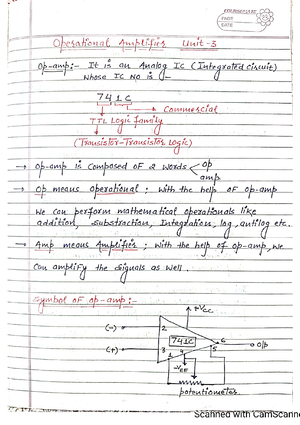 Operational Amplifier Unit-3
Op-amp:- It is an Analog IC (Integrated circuit)
whose IC No is :-
741C
Commercial
TTL Logic family
(Transistor-Transistor Logic)
→ Op-amp is composed of 2 words < op
amp.
→ Op means Operational ; with the help of op-amp
We can perform mathematical operationals like
addition, substraction, Integration, log, antilog etc.
→ Amp means Amplifier ; with the help of op-amp, we
can amplify the signals as well.
Symbol of op-amp :-
+VCC
(-) 2
7
741C
6 O/p
(+) 3
4
1
5
-VEE
potentiometer.
Scanned with CamScanne